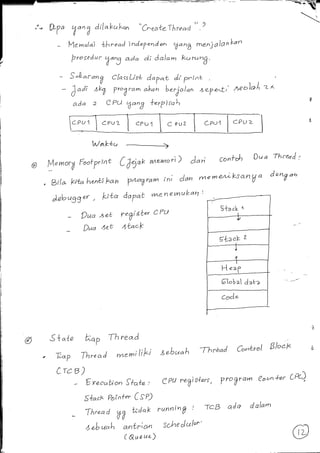 ∴ Apa yang dilakukan "Create Thread" ?
- Memulai thread independen yang menjalankan
prosedur yang ada di dalam kurung.
- Sekarang ClassList dapat di print.
- Jadi skg program akan berjalan seperti seolah-2
ada 2 CPU yang terpisah
CPU1 CPU2 CPU1 CPU2 CPU1 CPU2
Waktu
Memory Footprint (Jejak memori) dari contoh Dua Thread :
• Bila kita hentikan program ini dan memeriksanya dengan
debugger, kita dapat menemukan :
- Dua set register CPU
- Dua set stack
Stack 1
Stack 2
Heap
Global data
Code
State tiap Thread
• Tiap Thread memiliki sebuah Thread Control Block
(TCB)
- Execution State : CPU registers, program Counter (PC)
Stack Pointer (SP)
- Thread yg tidak running : TCB ada dalam
sebuah antrian scheduler
(Queue)
12